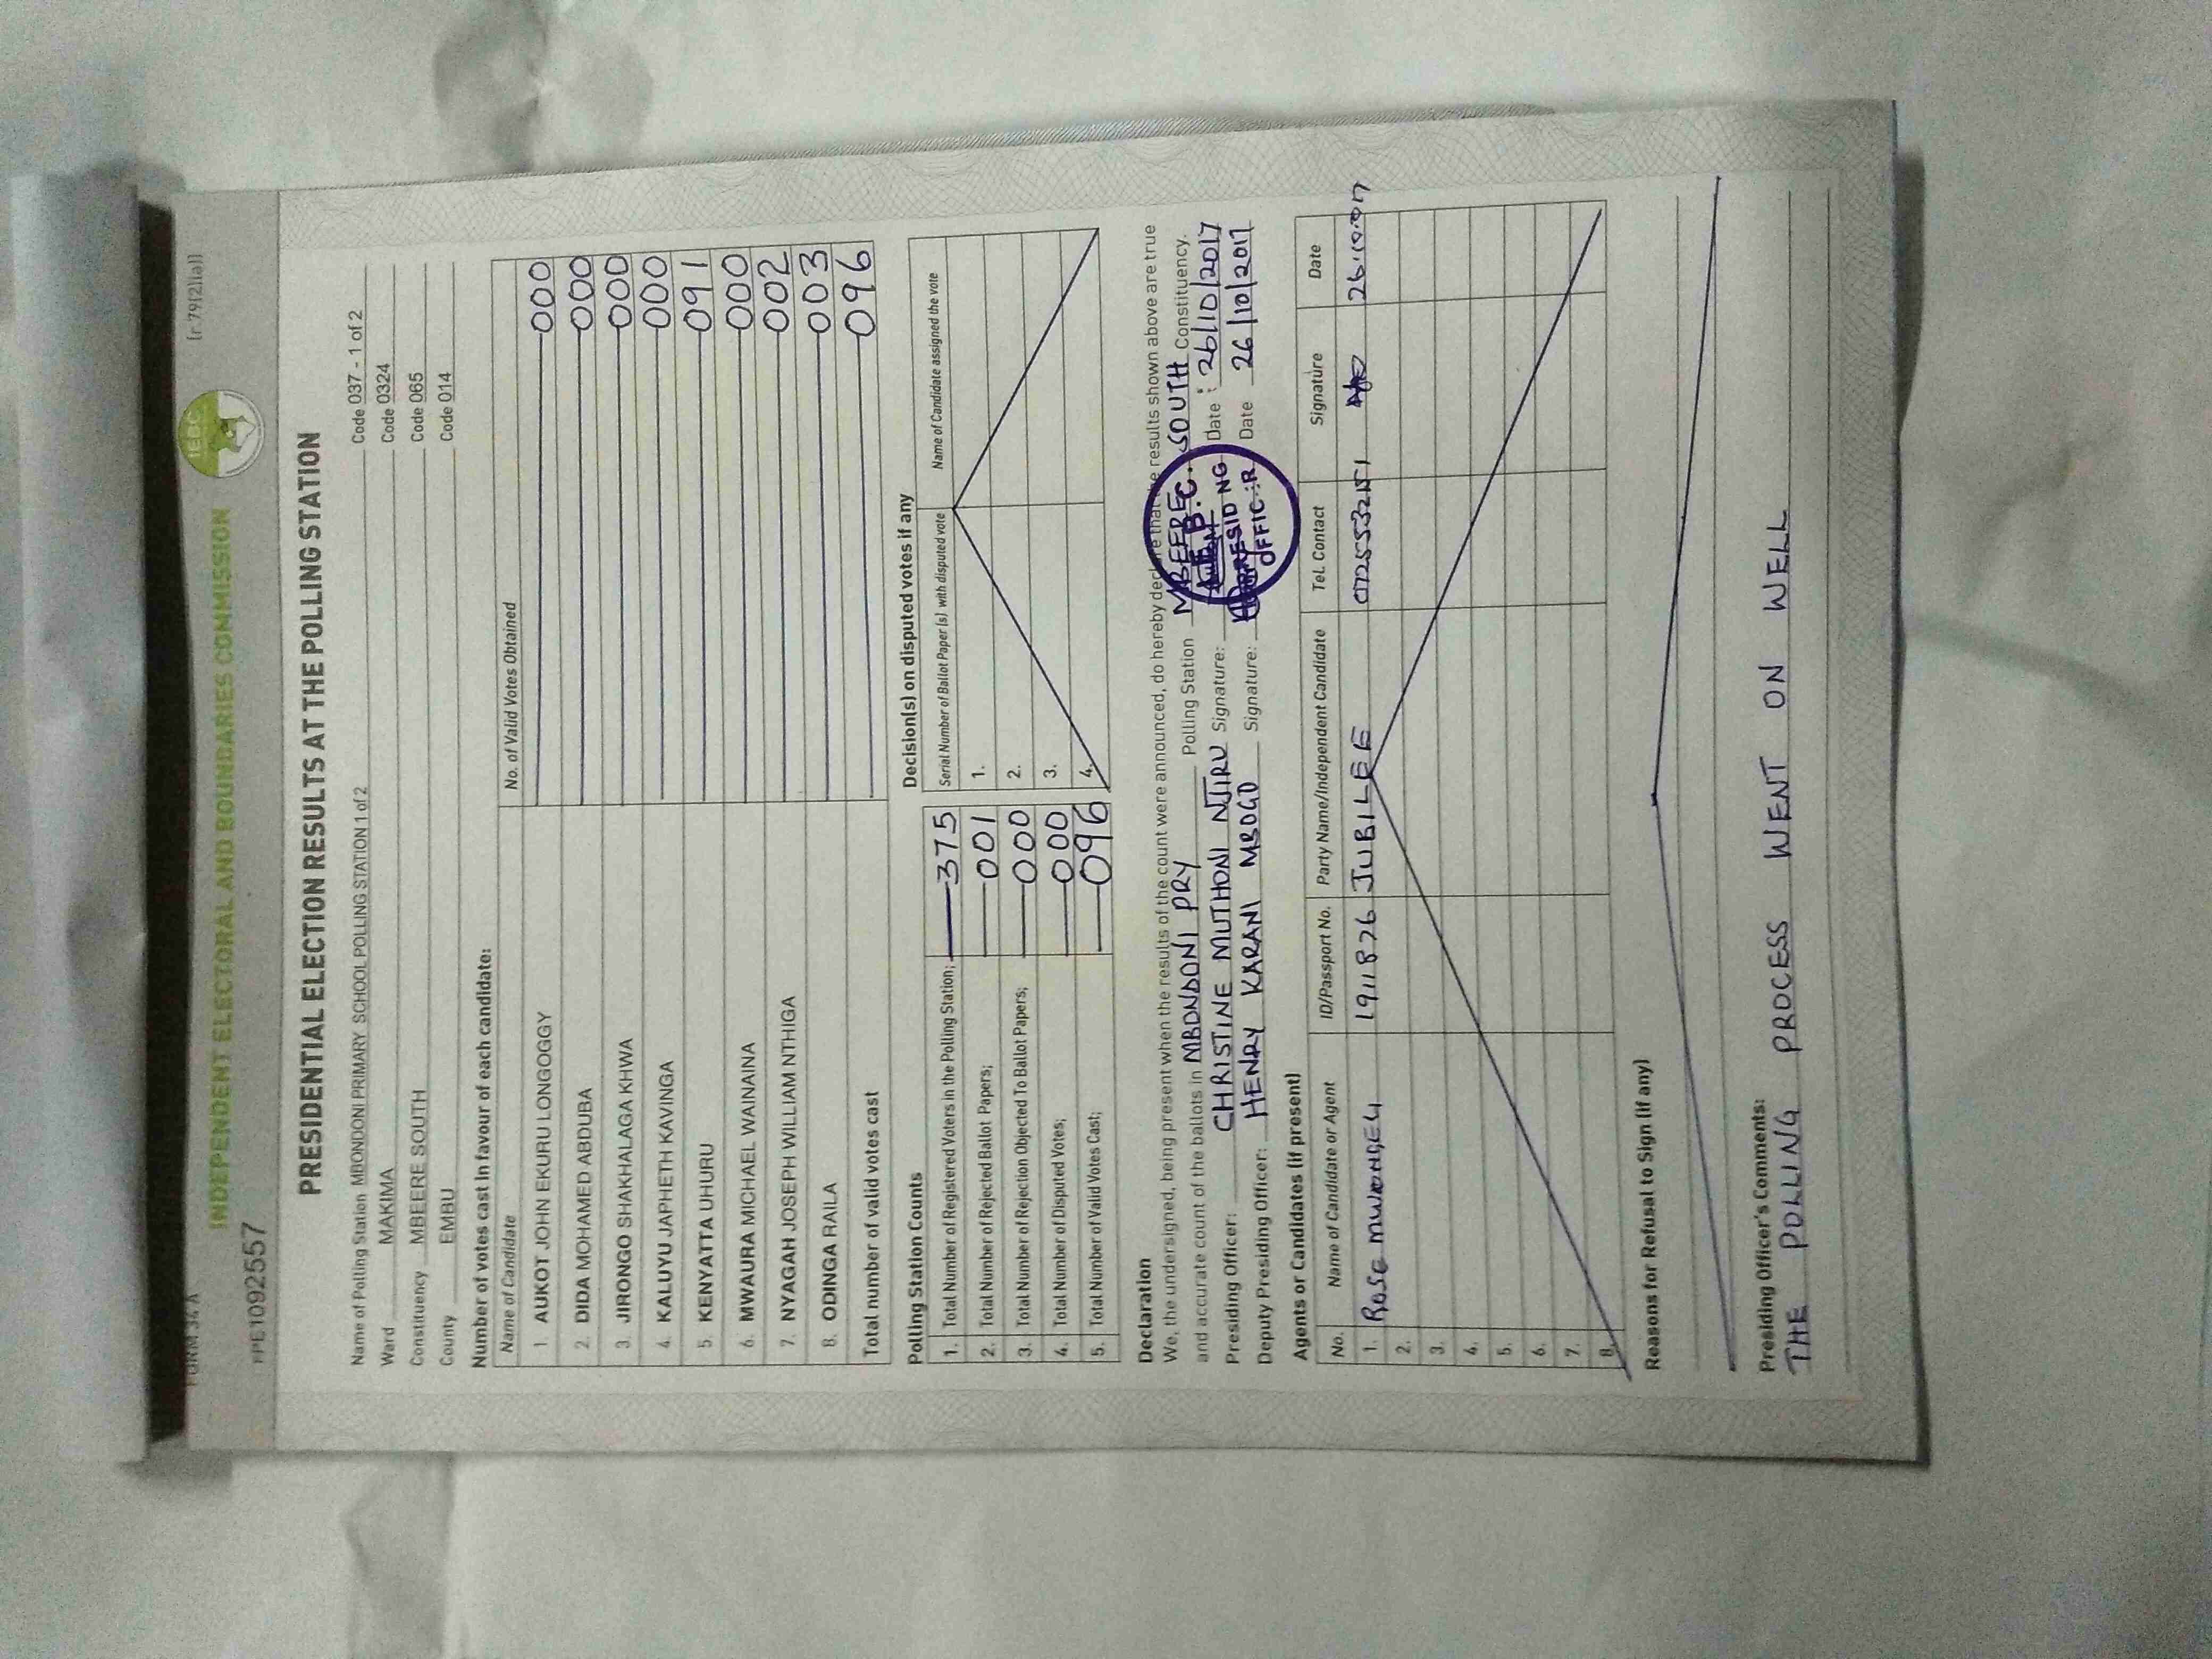 FORM 34 A
[r 79(2)(a)]
INDEPENDENT ELECTORAL AND BOUNDARIES COMMISSION
IEBC
PPE1092557
PRESIDENTIAL ELECTION RESULTS AT THE POLLING STATION
Name of Polling Station MBONDONI PRIMARY SCHOOL POLLING STATION 1 of 2 Code 037 - 1 of 2
Ward MAKIMA Code 0324
Constituency MBEERE SOUTH Code 065
County EMBU Code 014
Number of votes cast in favour of each candidate:
Name of Candidate No. of Valid Votes Obtained
1 AUKOT JOHN EKURU LONGOGGY 000
2. DIDA MOHAMED ABDUBA 000
3. JIRONGO SHAKHALAGA KHWA 000
4. KALUYU JAPHETH KAVINGA 000
5 KENYATTA UHURU 091
6. MWAURA MICHAEL WAINAINA 000
7. NYAGAH JOSEPH WILLIAM NTHIGA 002
8. ODINGA RAILA 003
Total number of valid votes cast 096
Polling Station Counts
1. Total Number of Registered Voters in the Polling Station; 375
2. Total Number of Rejected Ballot Papers; 001
3. Total Number of Rejection Objected To Ballot Papers; 000
4. Total Number of Disputed Votes; 000
5. Total Number of Valid Votes Cast; 096
Decision(s) on disputed votes if any
Serial Number of Ballot Paper (s) with disputed vote Name of Candidate assigned the vote
1.
2.
3.
4.
Declaration
We, the undersigned, being present when the results of the count were announced, do hereby declare that the results shown above are true
and accurate count of the ballots in MBONDONI PRY Polling Station MBEERE SOUTH Constituency.
Presiding Officer: CHRISTINE MUTHONI NJIRU Signature: Date : 26/10/2017
Deputy Presiding Officer: HENRY KARANI MBOGO Signature: Date 26/10/2017
I.E.B.C.
PRESIDING
OFFICER
Agents or Candidates (if present)
No. Name of Candidate or Agent ID/Passport No. Party Name/Independent Candidate Tel. Contact Signature Date
1. Rose 1911826 JUBILEE
2.
3.
4.
5.
6.
7.
8.
Reasons for Refusal to Sign (if any)
Presiding Officer's Comments:
THE POLLING PROCESS WENT ON WELL